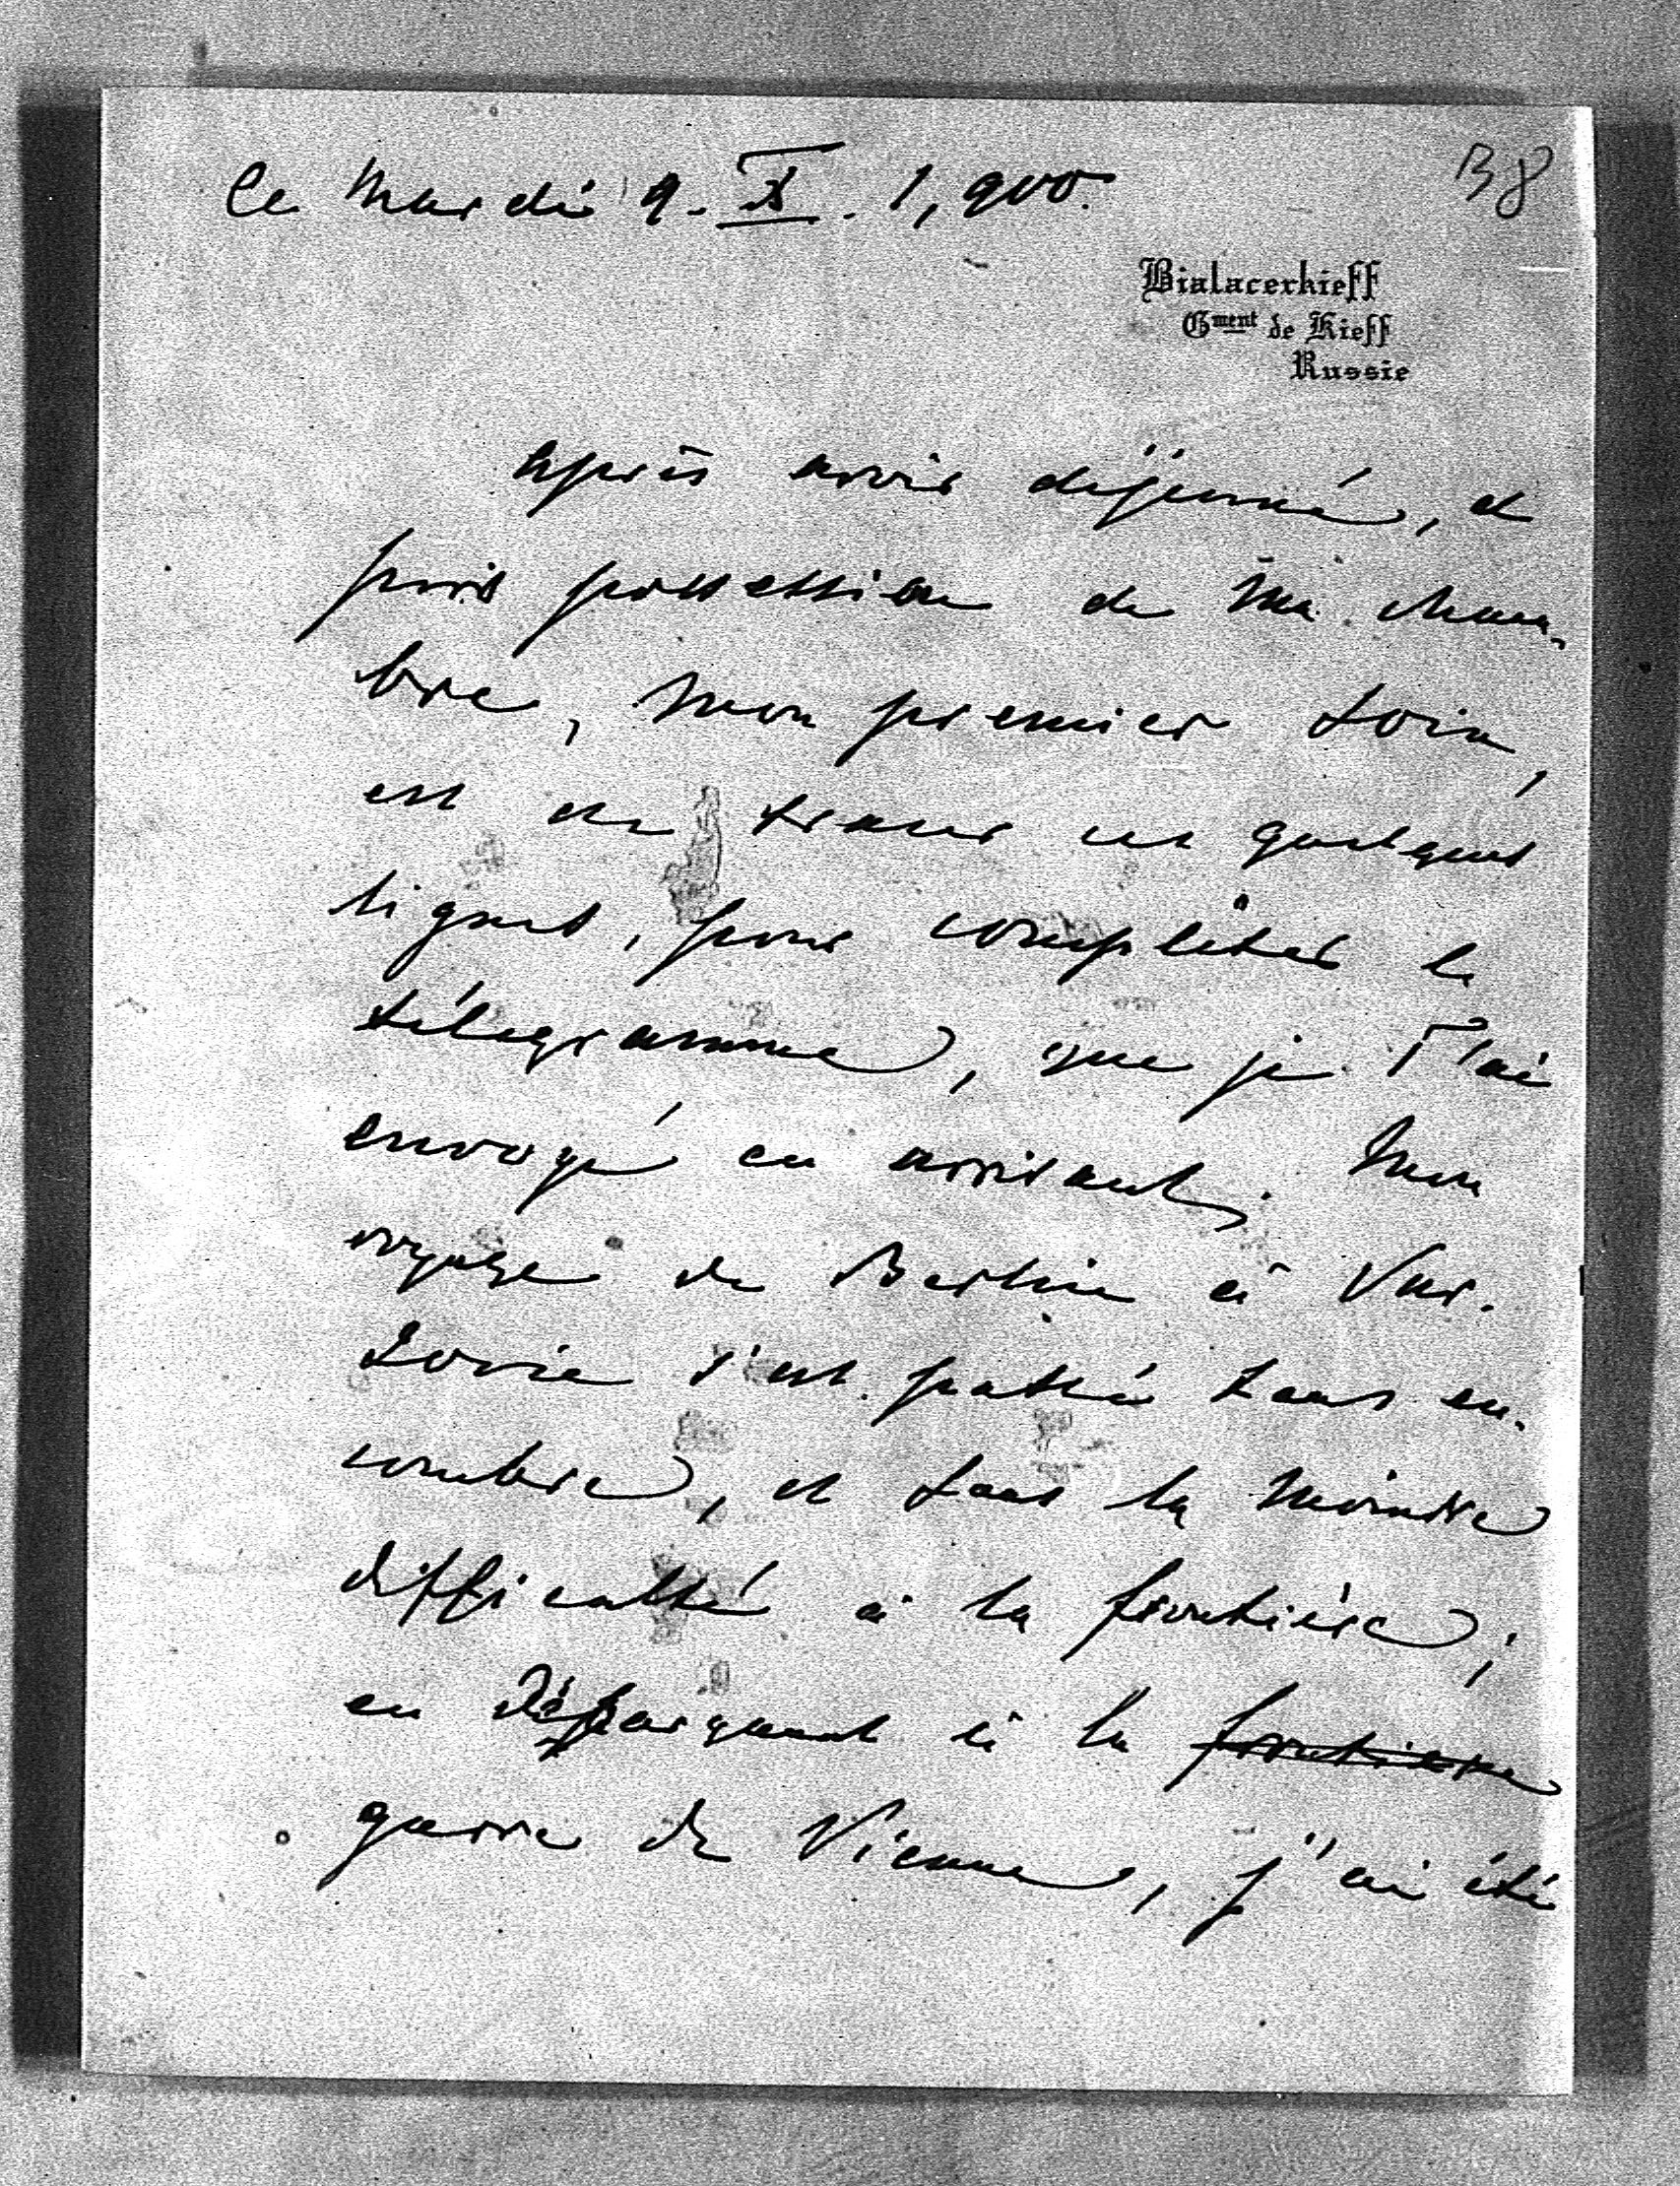 Ce Mardi 9. X. 1,900.
B8
Bialacerkieff
Gment de Kieff
Russie
Après avoir déjeuné, et
pris possession de ma cham-
bre, mon premier soin,
est de tracer ces quelques
lignes, pour compléter le
télégramme, que je T'ai
envoyé en arrivant. Mon
voyage de Berlin à Var-
sovie s'est passé sans en-
combre, et sans la moindre
difficulté à la frontière;
en débarquant à la frontière
garre de Vienne, j'ai été